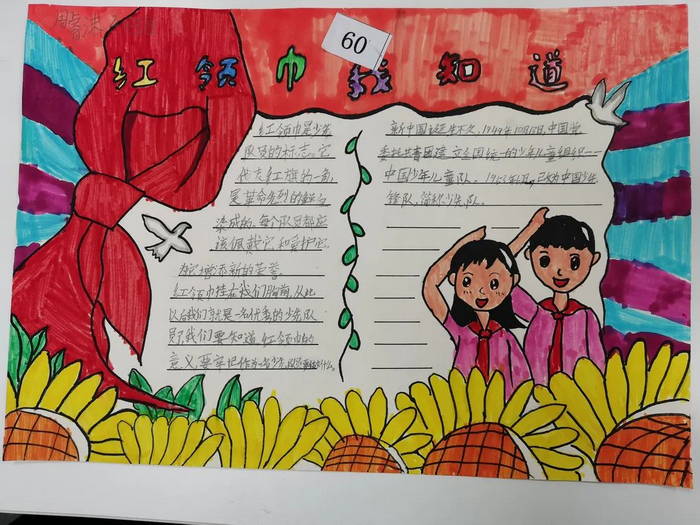 60
红领巾我知道
红领巾是少先
队员的标志。它
代表红旗的一角,
是革命先烈的鲜血
染成的,每个队员都应
该佩戴它和爱护它,
为它增添新的荣誉。
红领巾挂在我们胸前,从此
以后我们就是一名优秀的少先队
员,我们要知道红领巾的
意义,要牢记作为一名少先队员要做什么。
新中国诞生不久,1949年10月13日,中国党
委托共青团建立全国统一的少年儿童组织——
中国少年儿童队。1953年6月,改为中国少年
锋队,简称少先队。